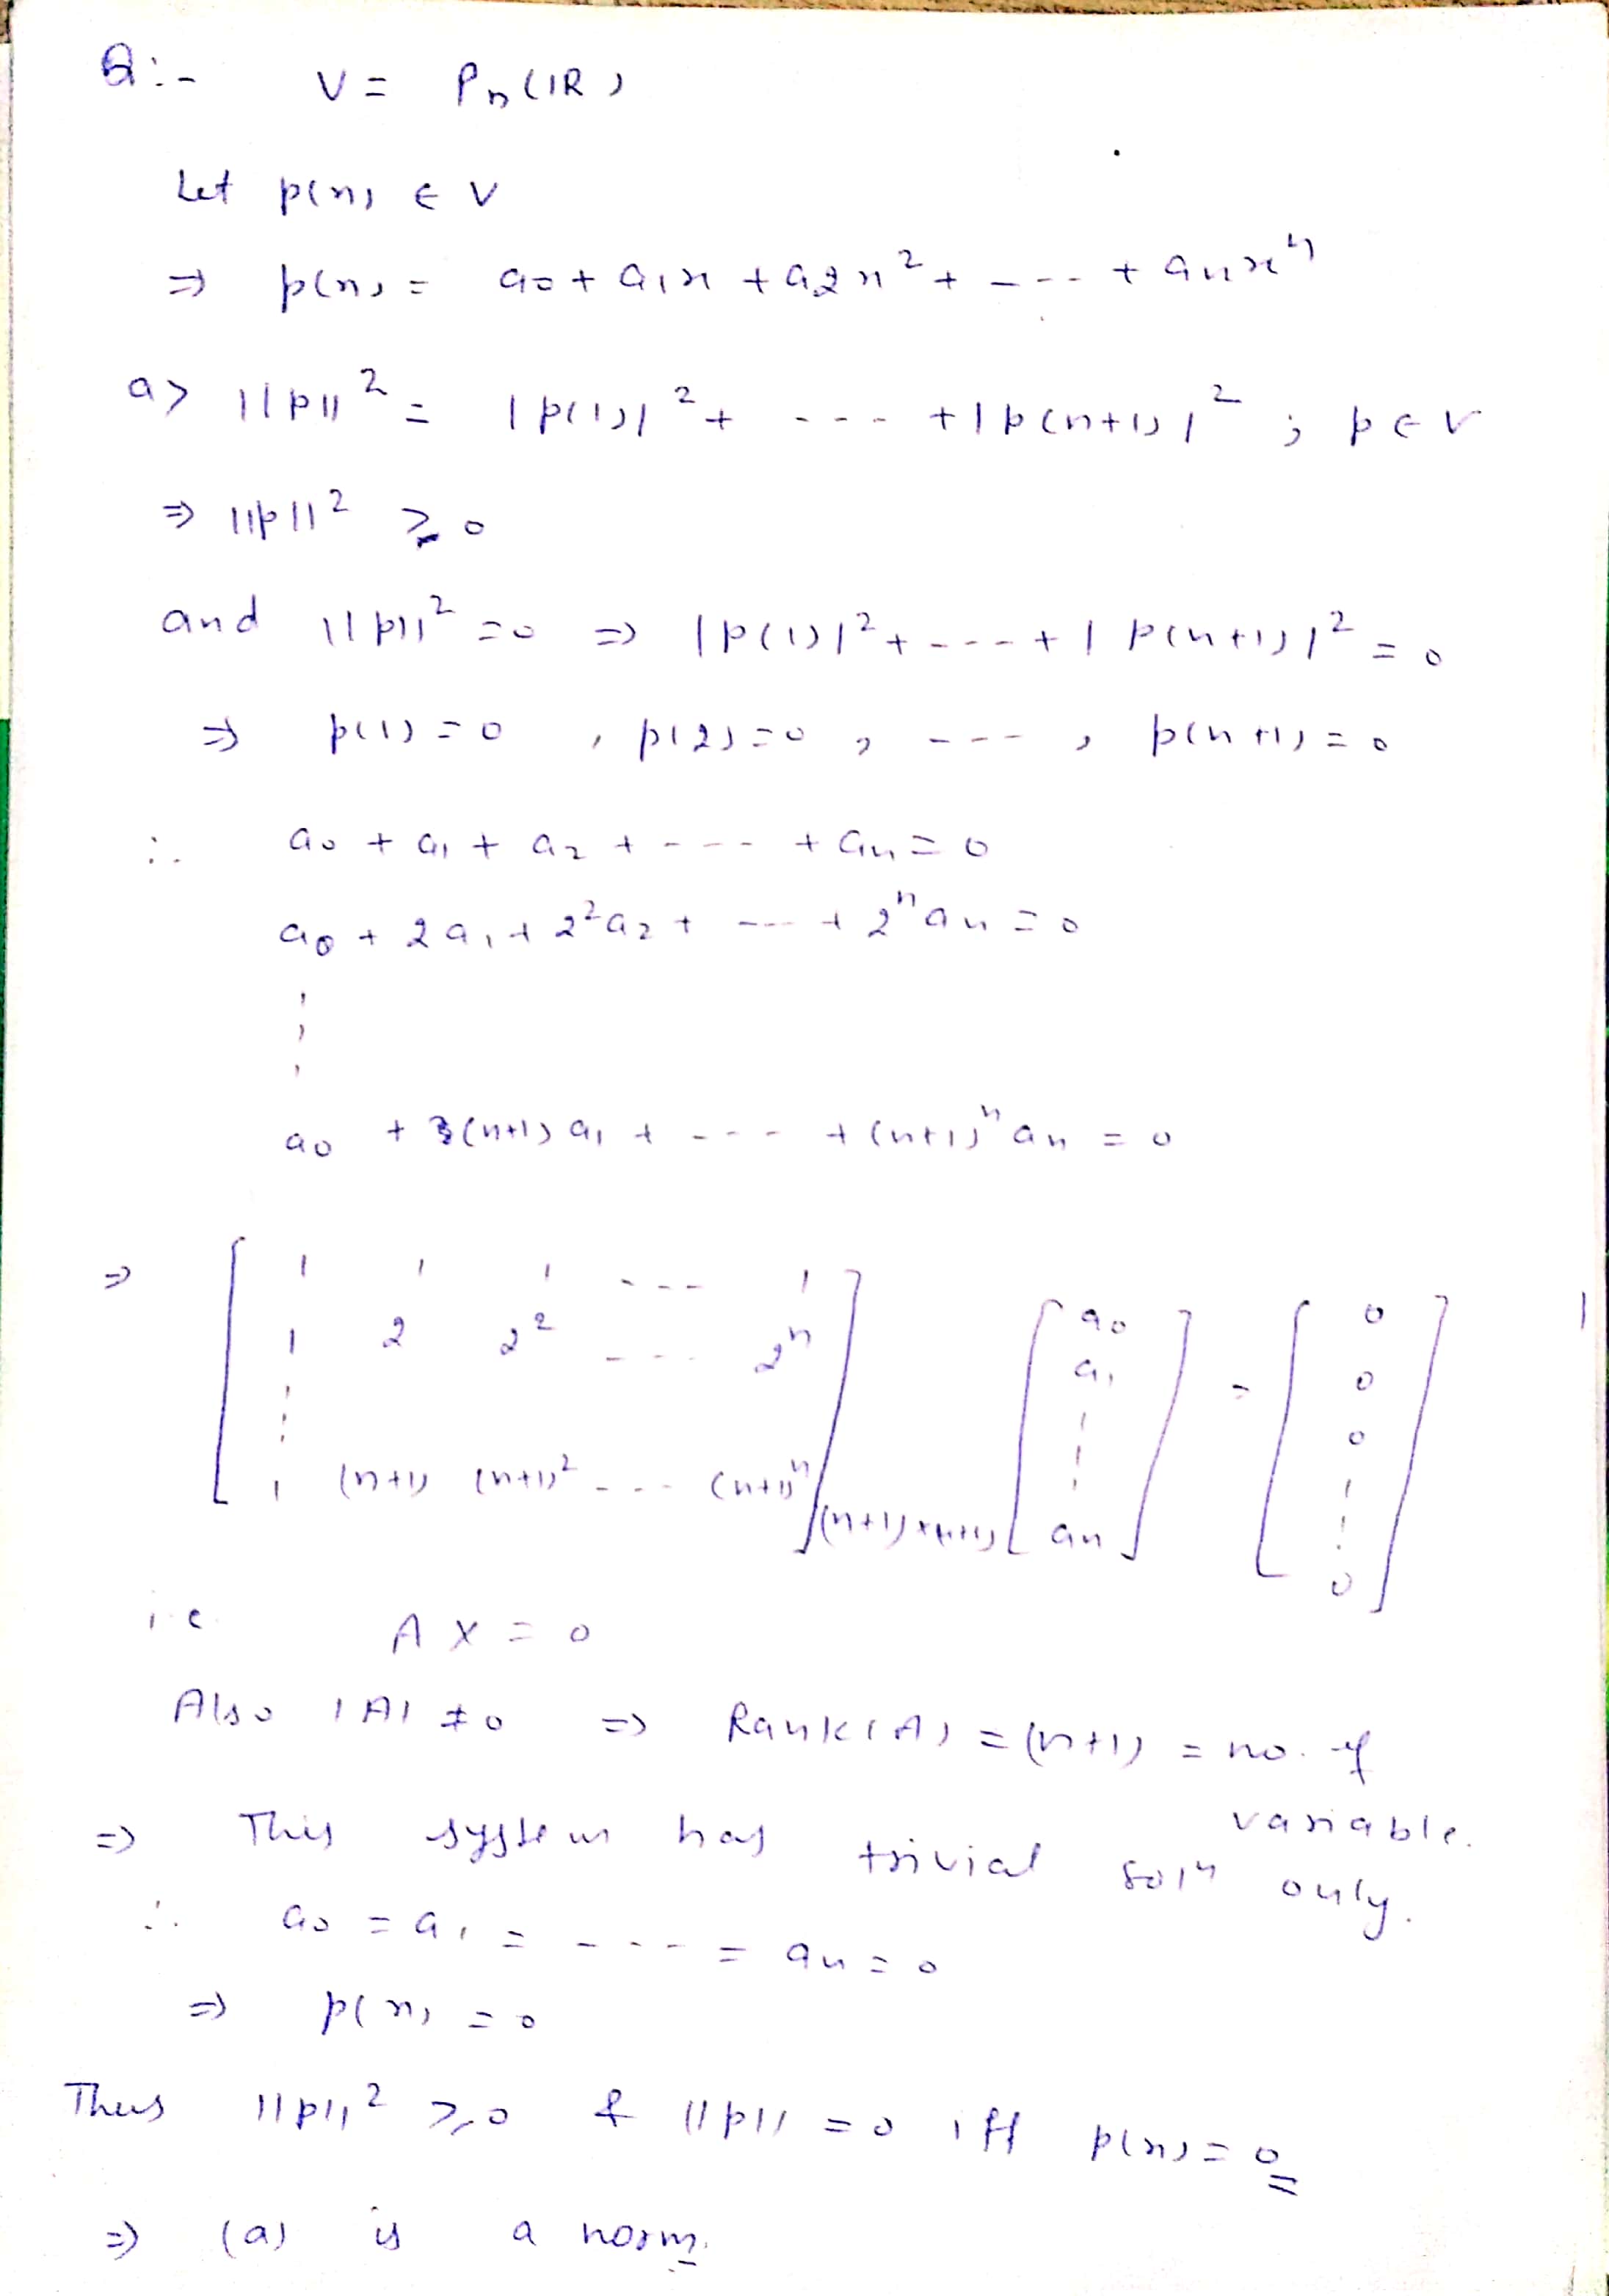 Q:- V = Pn(IR)
Let p(x) ∈ V
⇒ p(x) = a0 + a1x + a2x² + --- + anxⁿ
a> ||p||² = |p(1)|² + --- + |p(n+1)|² ; p ∈ V
⇒ ||p||² ≥ 0
and ||p||² = 0 ⇒ |p(1)|² + ---- + |p(n+1)|² = 0
⇒ p(1) = 0 , p(2) = 0 , --- , p(n+1) = 0
∴ a0 + a1 + a2 + ---- + an = 0
a0 + 2a1 + 2²a2 + --- + 2ⁿan = 0
⋮
a0 + (n+1)a1 + --- + (n+1)ⁿan = 0
⇒ [ 1 1 1 --- 1 ; 1 2 2² --- 2ⁿ ; ⋮ ; 1 (n+1) (n+1)² --- (n+1)ⁿ ](n+1)×(n+1) [ a0 ; a1 ; ⋮ ; an ] = [ 0 ; 0 ; 0 ; ⋮ ; 0 ]
i.e. AX = 0
Also |A| ≠ 0 ⇒ Rank(A) = (n+1) = no. of variable.
⇒ This system has trivial solⁿ only.
∴ a0 = a1 = ---- = an = 0
⇒ p(x) = 0
Thus ||p||² ≥ 0 & ||p|| = 0 iff p(x) = 0
⇒ (a) is a norm.